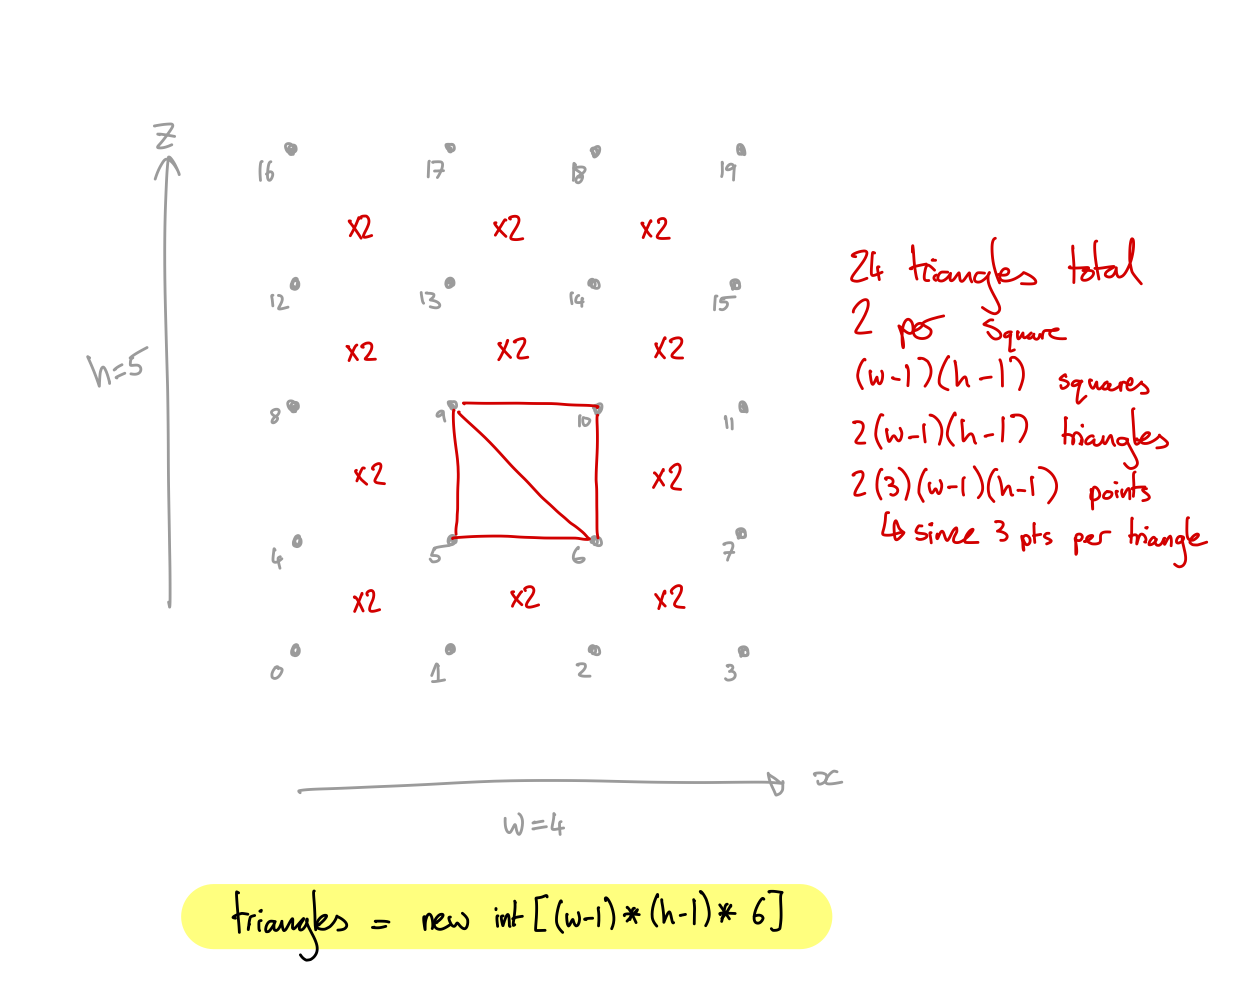 z
16 17 18 19
x2 x2 x2
12 13 14 15
h=5
x2 x2 x2
8 9 10 11
x2 x2
4 5 6 7
x2 x2 x2
0 1 2 3
x
w=4
24 triangles total
2 per square
(w-1)(h-1) squares
2(w-1)(h-1) triangles
2(3)(w-1)(h-1) points
↳ since 3 pts per triangle
triangles = new int[(w-1)*(h-1)* 6]